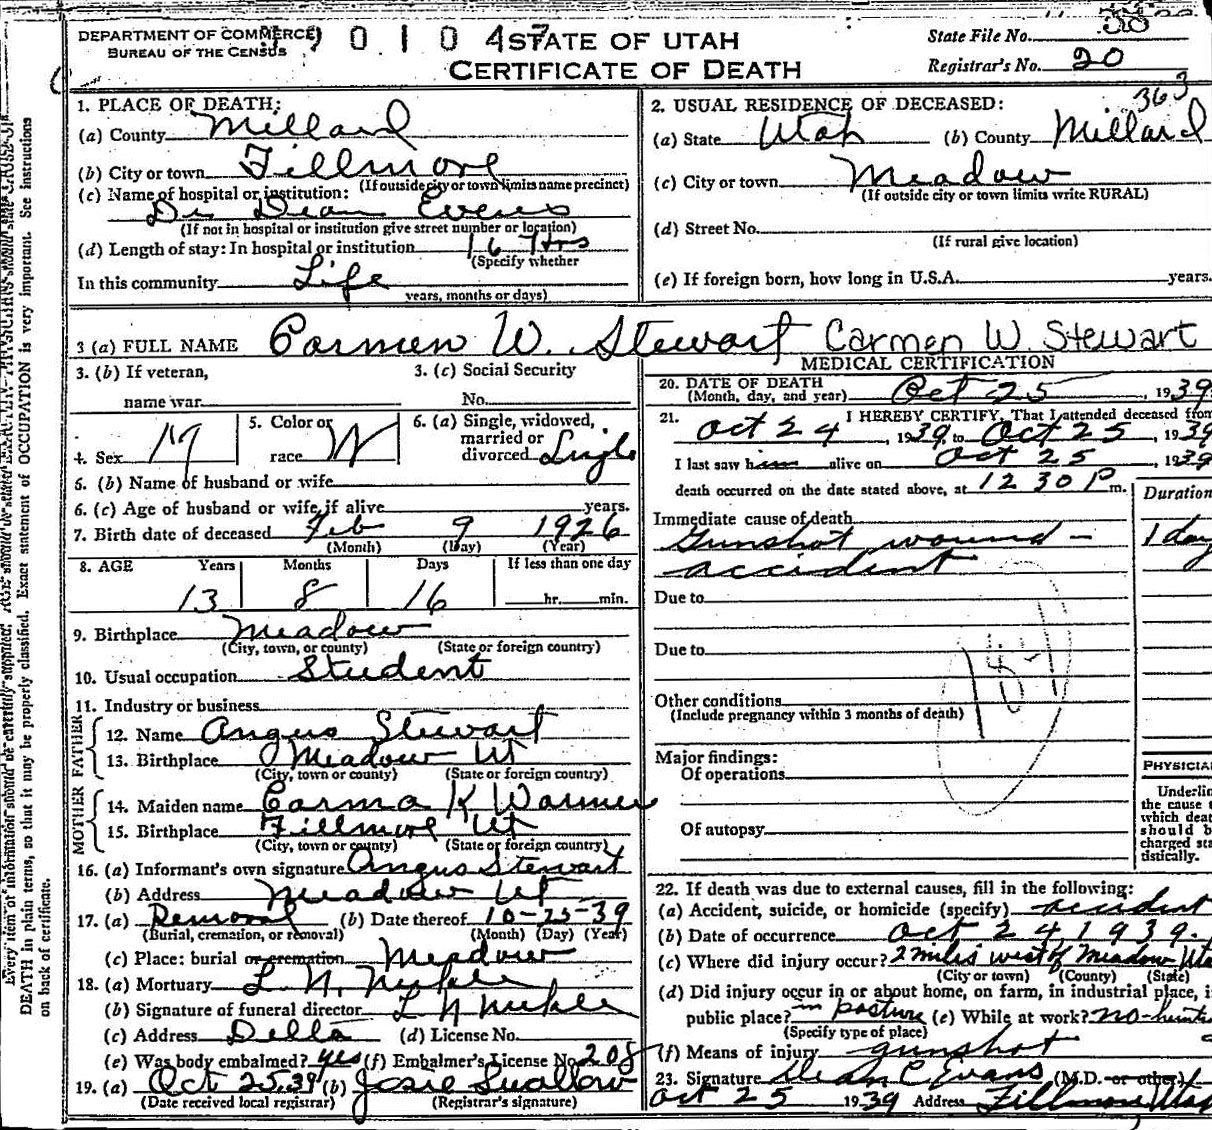 DEPARTMENT OF COMMERCE
BUREAU OF THE CENSUS
STATE OF UTAH
CERTIFICATE OF DEATH
State File No.
Registrar's No. 20
363
1. PLACE OF DEATH:
(a) County Millard
(b) City or town Fillmore
(If outside city or town limits name precinct)
(c) Name of hospital or institution:
Dr Dean Evans
(If not in hospital or institution give street number or location)
(d) Length of stay: In hospital or institution 16 Hrs
(Specify whether
In this community Life
years, months or days)
2. USUAL RESIDENCE OF DECEASED:
(a) State Utah (b) County Millard
(c) City or town Meadow
(If outside city or town limits write RURAL)
(d) Street No.
(If rural give location)
(e) If foreign born, how long in U.S.A. years.
3 (a) FULL NAME Carmen W. Stewart Carmen W. Stewart
3. (b) If veteran,
name war
3. (c) Social Security
No.
4. Sex M
5. Color or race W
6. (a) Single, widowed, married or divorced Single
6. (b) Name of husband or wife
6. (c) Age of husband or wife, if alive years.
7. Birth date of deceased Feb 9 1926
(Month) (Day) (Year)
8. AGE Years Months Days If less than one day
13 8 16 hr. min.
9. Birthplace Meadow
(City, town, or county) (State or foreign country)
10. Usual occupation Student
11. Industry or business
FATHER
12. Name Angus Stewart
13. Birthplace Meadow Ut
(City, town or county) (State or foreign country)
MOTHER
14. Maiden name Carma K Warner
15. Birthplace Fillmore Ut
(City, town or county) (State or foreign country)
16. (a) Informant's own signature Angus Stewart
(b) Address Meadow Ut
17. (a) Removal (b) Date thereof 10-25-39
(Burial, cremation, or removal) (Month) (Day) (Year)
(c) Place: burial or cremation Meadow
18. (a) Mortuary L. N.
(b) Signature of funeral director L N
(c) Address Delta (d) License No.
(e) Was body embalmed? yes (f) Embalmer's License No. 208
19. (a) Oct 25 39 (b) Josie Swallow
(Date received local registrar) (Registrar's signature)
MEDICAL CERTIFICATION
20. DATE OF DEATH
(Month, day, and year) Oct 25, 1939
21. I HEREBY CERTIFY, That I attended deceased from
Oct 24, 1939, to Oct 25, 1939
I last saw him alive on Oct 25, 1939
death occurred on the date stated above, at 12 30 P m.
Duration
Immediate cause of death
Gunshot wound - 1 day
accident
Due to
Due to
Other conditions
(Include pregnancy within 3 months of death)
Major findings:
Of operations
Of autopsy
PHYSICIA
Underlin
the cause t
which deat
should b
charged sta
tistically.
22. If death was due to external causes, fill in the following:
(a) Accident, suicide, or homicide (specify) accident
(b) Date of occurrence Oct 24 1939.
(c) Where did injury occur? 2 miles west of Meadow Uta
(City or town) (County) (State)
(d) Did injury occur in or about home, on farm, in industrial place, i
public place? in pasture (e) While at work? no-
(Specify type of place)
(f) Means of injury gunshot
23. Signature Dean C. Evans (M.D. or other)
Oct 25 1939 Address Fillmore Utah
DEATH in plain terms, so that it may be properly classified. Exact statement of OCCUPATION is very important. See instructions
on back of certificate.